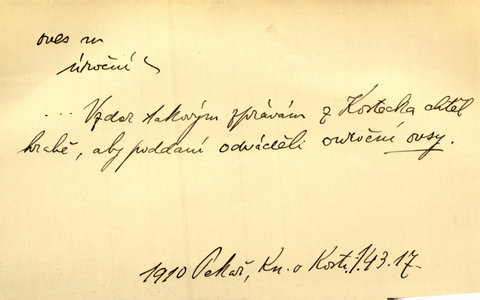 oves m
úroční
... Vzdor takovým zprávám z Kostecka chtěl
hrabě, aby poddaní odváděli ouroční ovsy.
1910 Pekař, Kn. o Kosti. I.43.17.